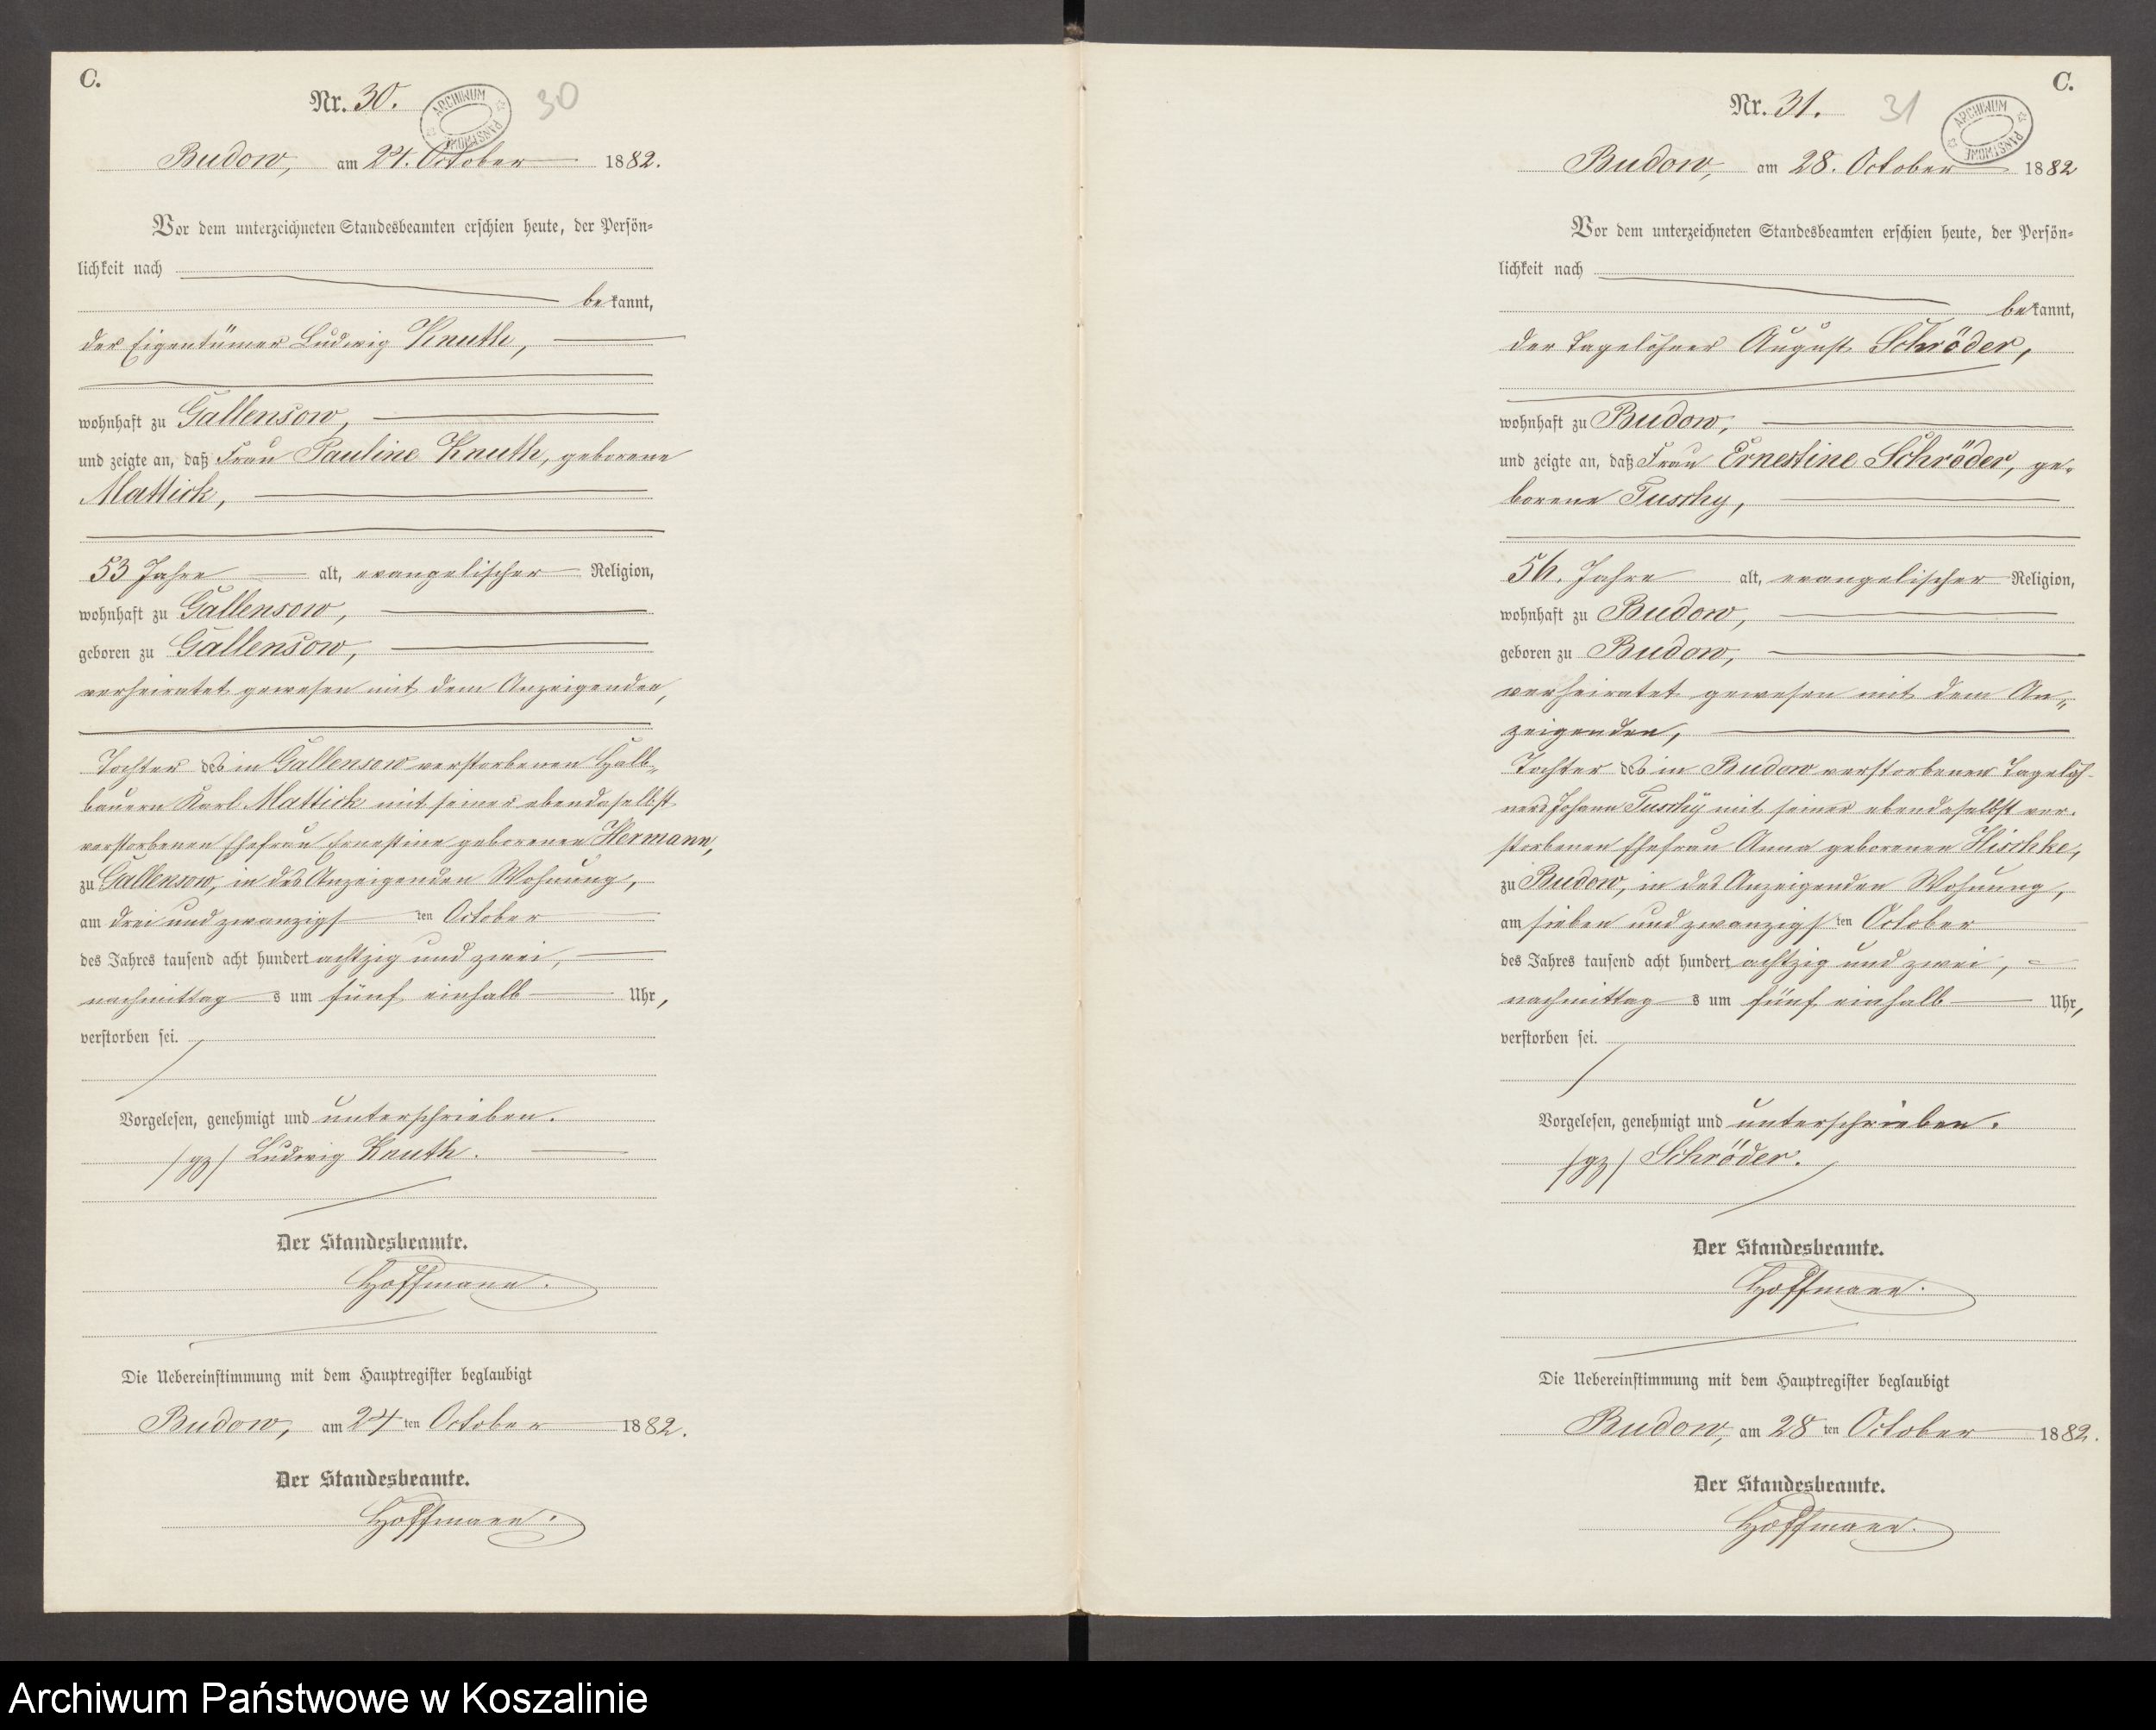 C.
Nr. 30.
ARCHIWUM PAŃSTWOWE
30
Budow, am 24. October 1882.
Vor dem unterzeichneten Standesbeamten erschien heute, der Persön-
lichkeit nach
bekannt,
der Eigentümer Ludwig Knuth,
wohnhaft zu Gallensow,
und zeigte an, daß Frau Pauline Knuth, geborene
Mattick,
53 Jahre alt, evangelischer Religion,
wohnhaft zu Gallensow,
geboren zu Gallensow,
verheiratet gewesen mit dem Anzeigenden,
Tochter des in Gallensow verstorbenen Halb-
bauern Karl Mattick mit seiner ebendaselbst
verstorbenen Ehefrau Ernestine geborenen Hermann,
zu Gallensow, in des Anzeigenden Wohnung,
am drei und zwanzigsten October
des Jahres tausend acht hundert achtzig und zwei,
nachmittags um fünf einhalb Uhr,
verstorben sei.
Vorgelesen, genehmigt und unterschrieben.
/gz/ Ludwig Knuth.
Der Standesbeamte.
Hoffmann.
Die Uebereinstimmung mit dem Hauptregister beglaubigt
Budow, am 24ten October 1882.
Der Standesbeamte.
Hoffmann.
C.
Nr. 31.
31
ARCHIWUM PAŃSTWOWE
Budow, am 28. October 1882
Vor dem unterzeichneten Standesbeamten erschien heute, der Persön-
lichkeit nach
bekannt,
der Tagelöhner August Schröder,
wohnhaft zu Budow,
und zeigte an, daß Frau Ernestine Schröder, ge-
borene Tuschy,
Jahre alt, evangelischer Religion,
wohnhaft zu Budow,
geboren zu Budow,
verheiratet gewesen mit dem An-
zeigenden,
Tochter des in Budow verstorbenen Tagelöh-
ners Johann Tuschy mit seiner ebendaselbst ver-
storbenen Ehefrau Anna geborenen
zu Budow, in des Anzeigenden Wohnung,
am sieben und zwanzigsten October
des Jahres tausend acht hundert achtzig und zwei,
nachmittags um fünf einhalb Uhr,
verstorben sei.
Vorgelesen, genehmigt und unterschrieben.
/gz/ Schröder.
Der Standesbeamte.
Hoffmann.
Die Uebereinstimmung mit dem Hauptregister beglaubigt
Budow, am 28ten October 1882.
Der Standesbeamte.
Hoffmann.
Archiwum Państwowe w Koszalinie